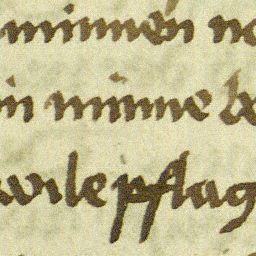 minnen
in minne
wile pflag